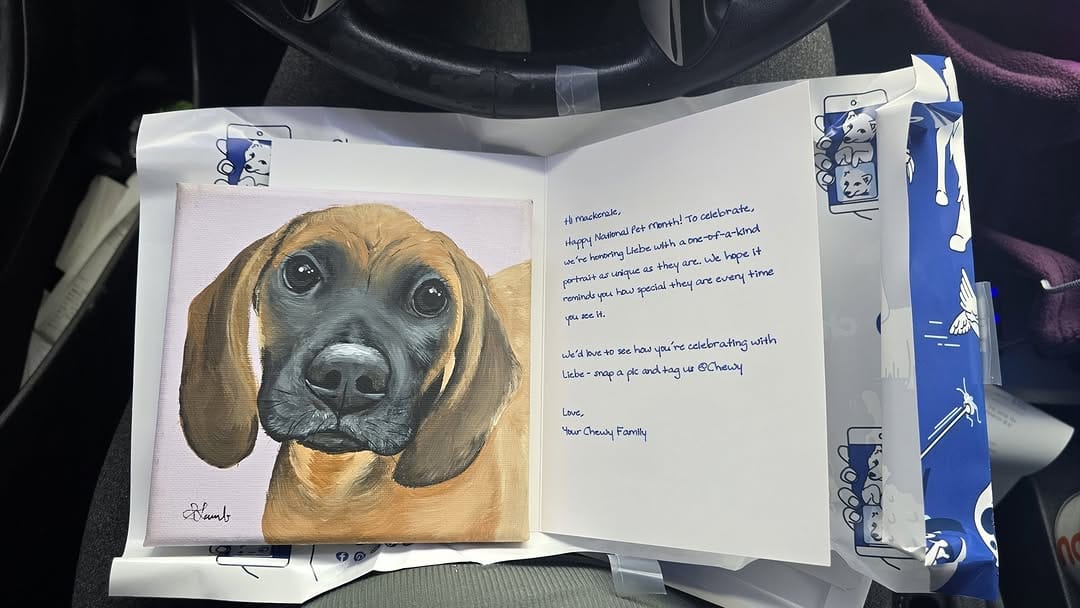 Hi Mackenzie,
Happy National Pet Month! To celebrate,
we're honoring Liebe with a one-of-a-kind
portrait as unique as they are. We hope it
reminds you how special they are every time
you see it.
We'd love to see how you're celebrating with
Liebe - snap a pic and tag us @Chewy
Love,
Your Chewy Family
Lamb